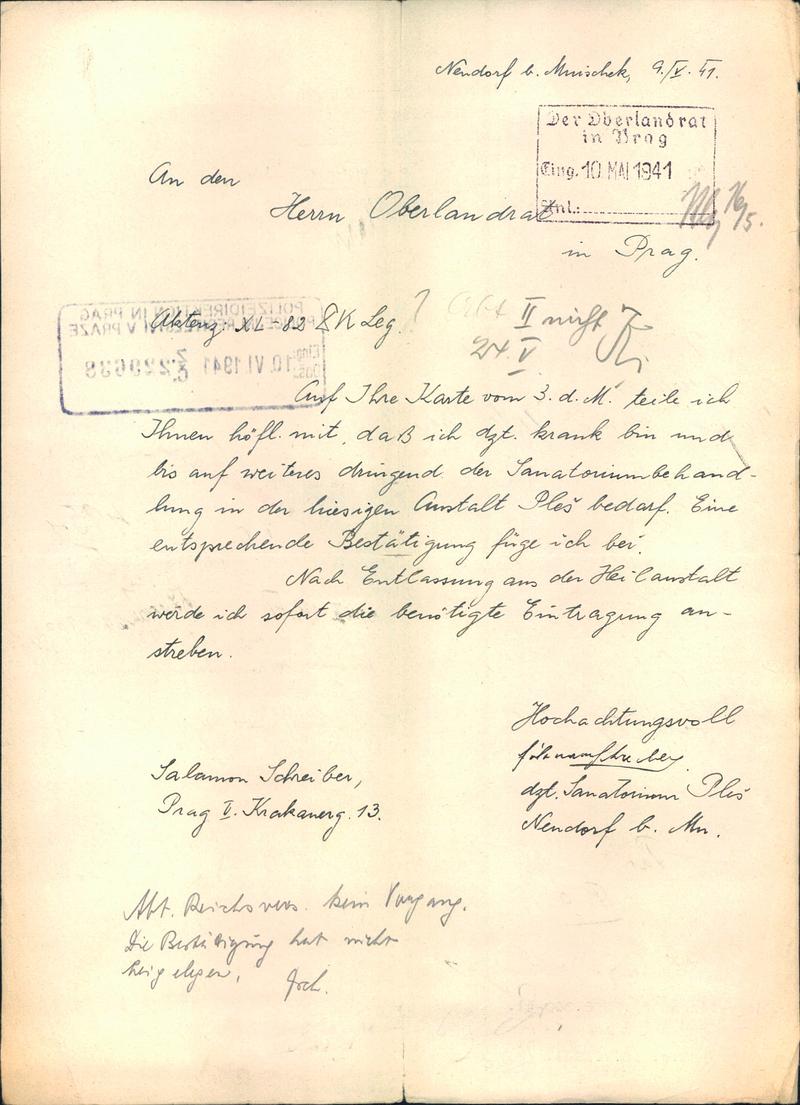 Neudorf b. Mnischek, 9./V. 41.
Der Oberlandrat
in Prag
Eing. 10. MAI 1941
Anl.:
An den
Herrn Oberlandrat
in Prag.
16/5.
POLIZEIDIREKTION IN PRAG
V PRAZE
10. VI. 1941
Aktenz: XL-82 Leg.
?
II nicht
24. V.
Auf Ihre Karte vom 3. d. M. teile ich
Ihnen höfl. mit, daß ich dzt. krank bin und
bis auf weiteres dringend der Sanatoriumbehand-
lung in der hiesigen Anstalt Pleš bedarf. Eine
entsprechende Bestätigung füge ich bei.
Nach Entlassung aus der Heilanstalt
werde ich sofort die benötigte Eintragung an-
streben.
Hochachtungsvoll
dzt. Sanatorium Pleš
Neudorf b. Mn.
Salamon Schreiber,
Prag V. Krakauerg. 13.
Abt. Reichsvers. kein Vorgang.
Die Bestätigung hat nicht
beigelegen.